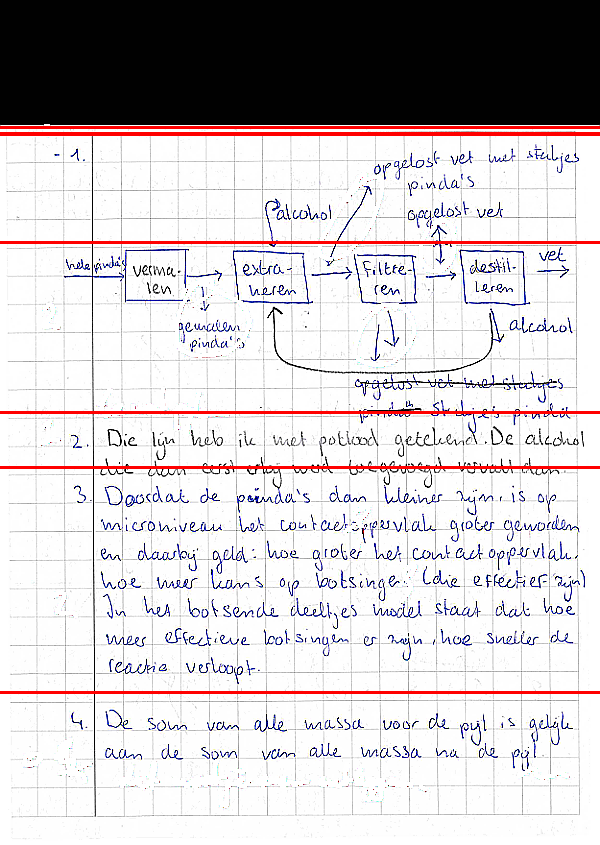 - 1.
opgelost vet met stukjes
pinda's
alcohol
opgelost vet
hele pinda's
verma-
len
extra-
heren
filtre-
ren
destil-
leren
vet
gemalen
pinda's
alcohol
opgelost vet met stukjes
pinda stukjes pinda
2. Die lijn heb ik met potlood getekend. De alcohol
die dan eerst erbij werd toegevoegd vervalt dan.
3. Doordat de pinda's dan kleiner zijn, is op
microniveau het contactoppervlak groter geworden
en daarbij geld: hoe groter het contactoppervlak,
hoe meer kans op botsingen. (die effectief zijn)
In het botsende deeltjes model staat dat hoe
meer effectieve botsingen er zijn, hoe sneller de
reactie verloopt.
4. De som van alle massa voor de pijl is gelijk
aan de som van alle massa na de pijl